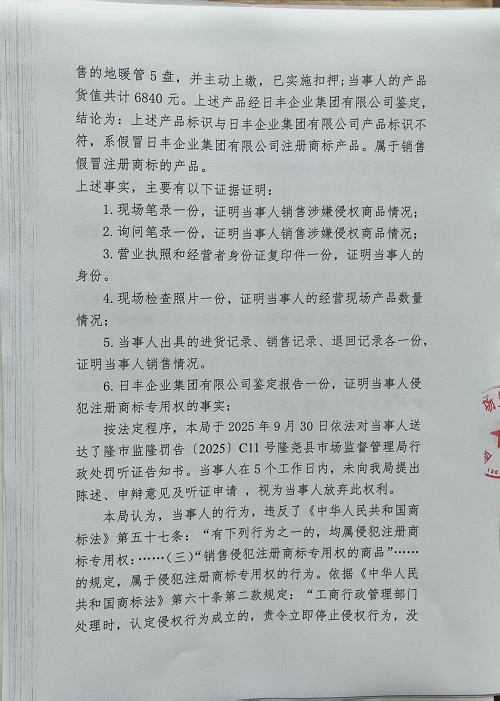 售的地暖管 5 盘，并主动上缴，已实施扣押;当事人的产品
货值共计 6840 元。上述产品经日丰企业集团有限公司鉴定，
结论为：上述产品标识与日丰企业集团有限公司产品标识不
符，系假冒日丰企业集团有限公司注册商标产品。属于销售
假冒注册商标的产品。
上述事实，主要有以下证据证明：
1.现场笔录一份，证明当事人销售涉嫌侵权商品情况；
2.询问笔录一份，证明当事人销售涉嫌侵权商品情况；
3.营业执照和经营者身份证复印件一份，证明当事人的
身份。
4.现场检查照片一份，证明当事人的经营现场产品数量
情况；
5.当事人出具的进货记录、销售记录、退回记录各一份，
证明当事人销售情况。
6.日丰企业集团有限公司鉴定报告一份，证明当事人侵
犯注册商标专用权的事实；
按法定程序，本局于 2025 年 9 月 30 日依法对当事人送
达了隆市监隆罚告〔2025〕C11 号隆尧县市场监督管理局行
政处罚听证告知书。当事人在 5 个工作日内，未向我局提出
陈述、申辩意见及听证申请 ，视为当事人放弃此权利。
本局认为，当事人的行为，违反了《中华人民共和国商
标法》第五十七条：“有下列行为之一的，均属侵犯注册商
标专用权：……（三）“销售侵犯注册商标专用权的商品”……
的规定，属于侵犯注册商标专用权的行为。依据《中华人民
共和国商标法》第六十条第二款规定：“工商行政管理部门
处理时，认定侵权行为成立的，责令立即停止侵权行为，没
场